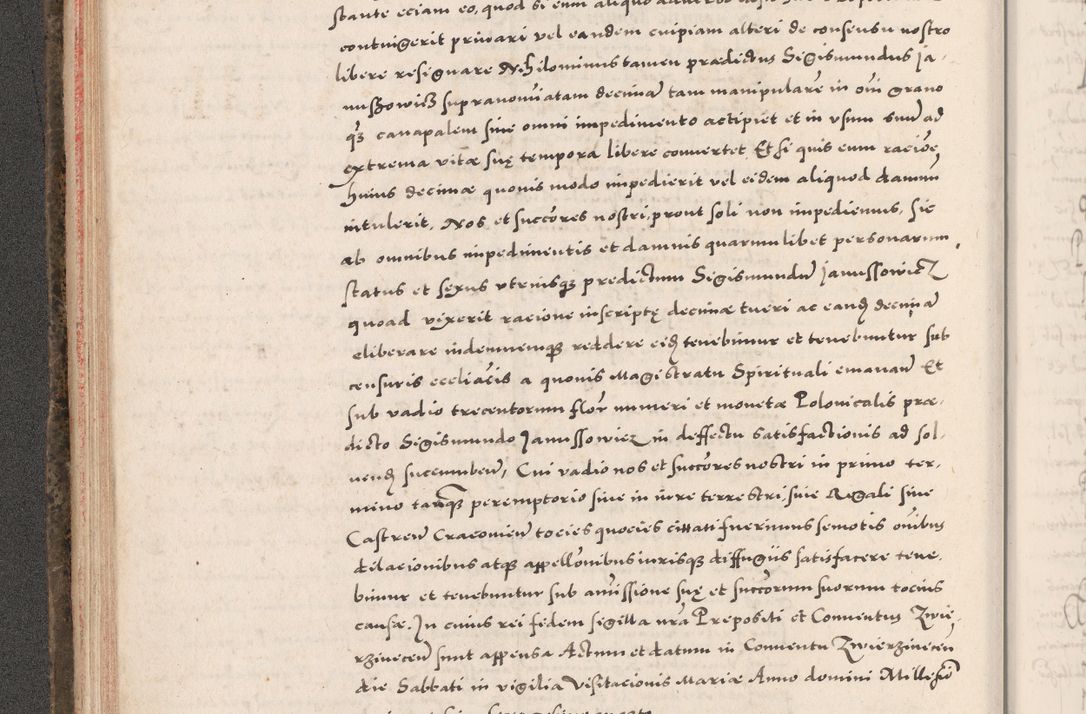 stante eciam eo, quod si eum aliquo
contingerit priuari vel eandem cuipiam alteri de consensu nostro
libere resignare Nihilominus tamen prædictus Sigismundus Ja-
nuszowicz supranoiatam decimā tam manipularē in oī grano
qz canapalem sine omni impedimento accipiet et in vsum suū ad
extrema vitæ suę tempora libere conuertet Et si quis eum racioē
huius decimæ quouis modo impedierit vel eidem aliquod damnū
intulerit, Nos et succores nostri, prout soli non impediemus, sic
ab omnibus impedimentis et damnis quarumlibet personarum
status et sexus vtriusqz predictum Sigismundū Janussowicz
quoad vixerit racione inscriptę decimæ tueri ac eand decimā
eliberare indemnemqz reddere eid tenebimur et tenebuntur sub
censuris eccliacis a quouis Magistratu Spirituali emanan Et
sub vadio trecentorum flor numeri et monetæ Polonicalis præ-
dicto Sigismundo Janussowicz in deffectu satisfactionis ad sol-
uend succumben, Cui vadio nos et succores nostri in primo ter-
mino tanqz peremptorio siue in iure terrestri, siue Regali siue
Castren Cracouien tocies quocies citati fuerimus semotis oibus
dilacionibus atqz appellonibus iurisqz diffugiis satisfacere tene-
bimur et tenebuntur sub amissione suę et succorum suorum tocius
causæ. In cuius rei fidem sigilla nra Prepositi et Conuentus Zwie-
rzinecen sunt appensa Actum et datum in Conuentu Zwierzinecen
die Sabbati in vigilia Visitacionis Mariæ Anno domini Millesio